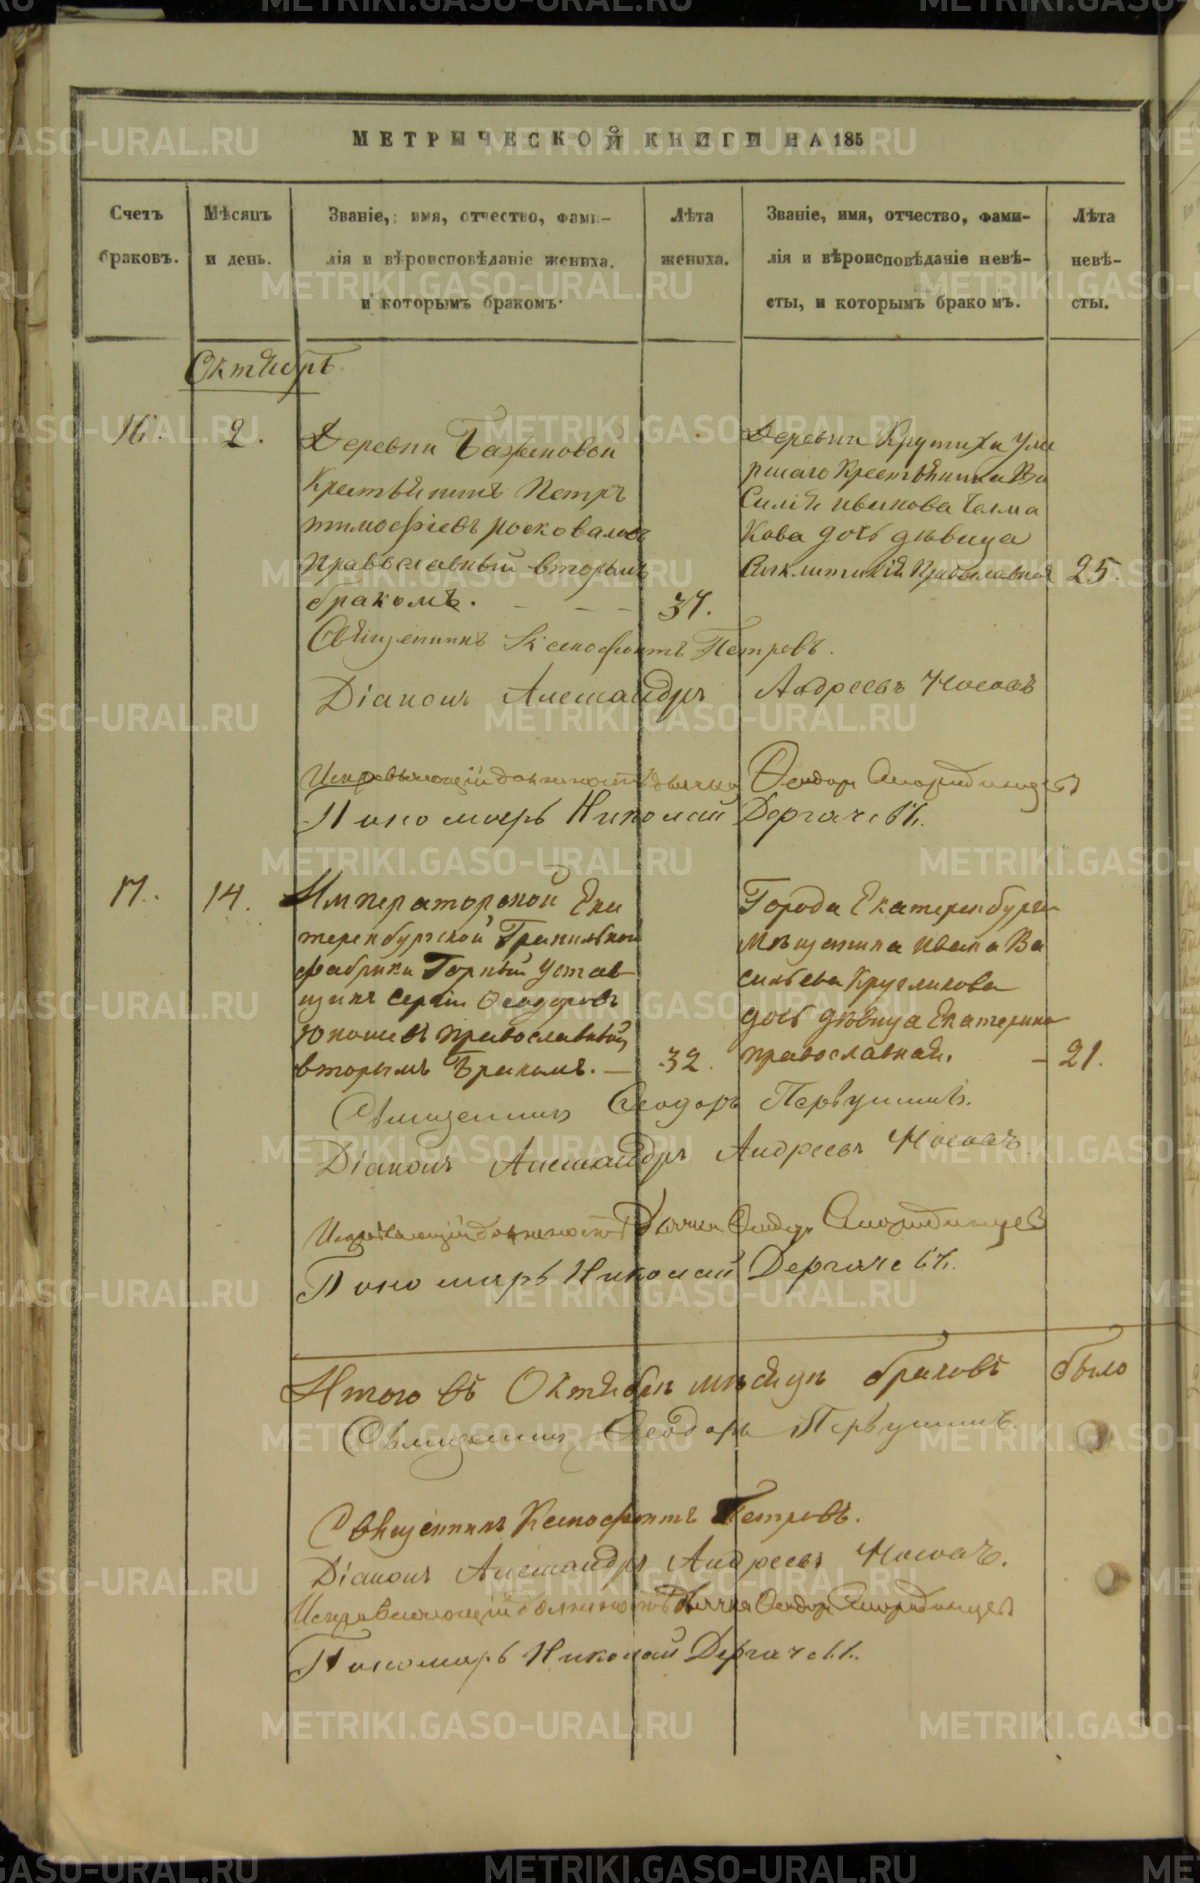 МЕТРИЧЕСКОЙ КНИГИ НА 185
Счетъ браковъ.
Мѣсяцъ и день.
Званіе, имя, отчество, фами-
лія и вѣроисповѣданіе жениха.
и которымъ бракомъ
Лѣта жениха.
Званіе, имя, отчество, фами-
лія и вѣроисповѣданіе невѣ-
сты, и которымъ бракомъ.
Лѣта невѣ-
сты.
Октябрь
16.
2.
Деревни Баженовой
Крестьянинъ Петръ
тимофіевъ росковаловъ
православный вторымъ
бракомъ.
37.
Деревни Крутихи уме
ршаго Крестьянина Ва
силія иванова
кова дочь дѣвица
Синклитикія Православная
25.
Священникъ Ксенофонтъ Петровъ.
Діаконъ Александръ Андреевъ Носовъ
Исправляющій должность дьячка Феодоръ
Пономарь Николай Дергачевъ.
17.
14.
Императорской Ека
теренбургской Гранильной
фабрики Горный Устав
щикъ Сергій Феодоровъ
Юконшевъ православный,
вторымъ Бракомъ.
32.
Города Екатеренбурга
Мѣщанина ивана Ва
сильева Кругликова
дочь дѣвица Екатерина
православная.
21.
Священникъ Феодоръ Первушинъ.
Діаконъ Александръ Андреевъ Носовъ
Исправляющій должность Дьячка Феодоръ
Пономарь Николай Дергачевъ.
Итого въ Октябрѣ мѣсяцѣ браковъ было
Священникъ Феодоръ Первушинъ
Священникъ Ксенофонтъ Петровъ.
Діаконъ Александръ Андреевъ Носовъ.
Исправляющій должность Дьячка Феодоръ
Пономарь Николай Дергачевъ.
METRIKI.GASO-URAL.RU